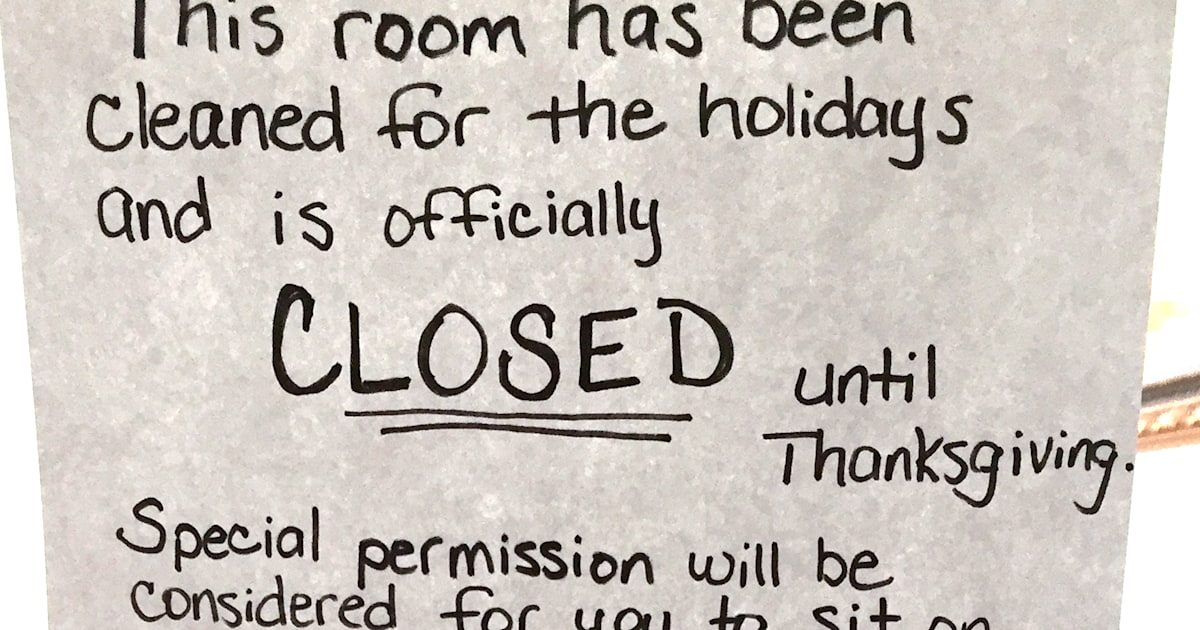 This room has been
cleaned for the holidays
and is officially
CLOSED until
Thanksgiving.
Special permission will be
considered for you to sit on